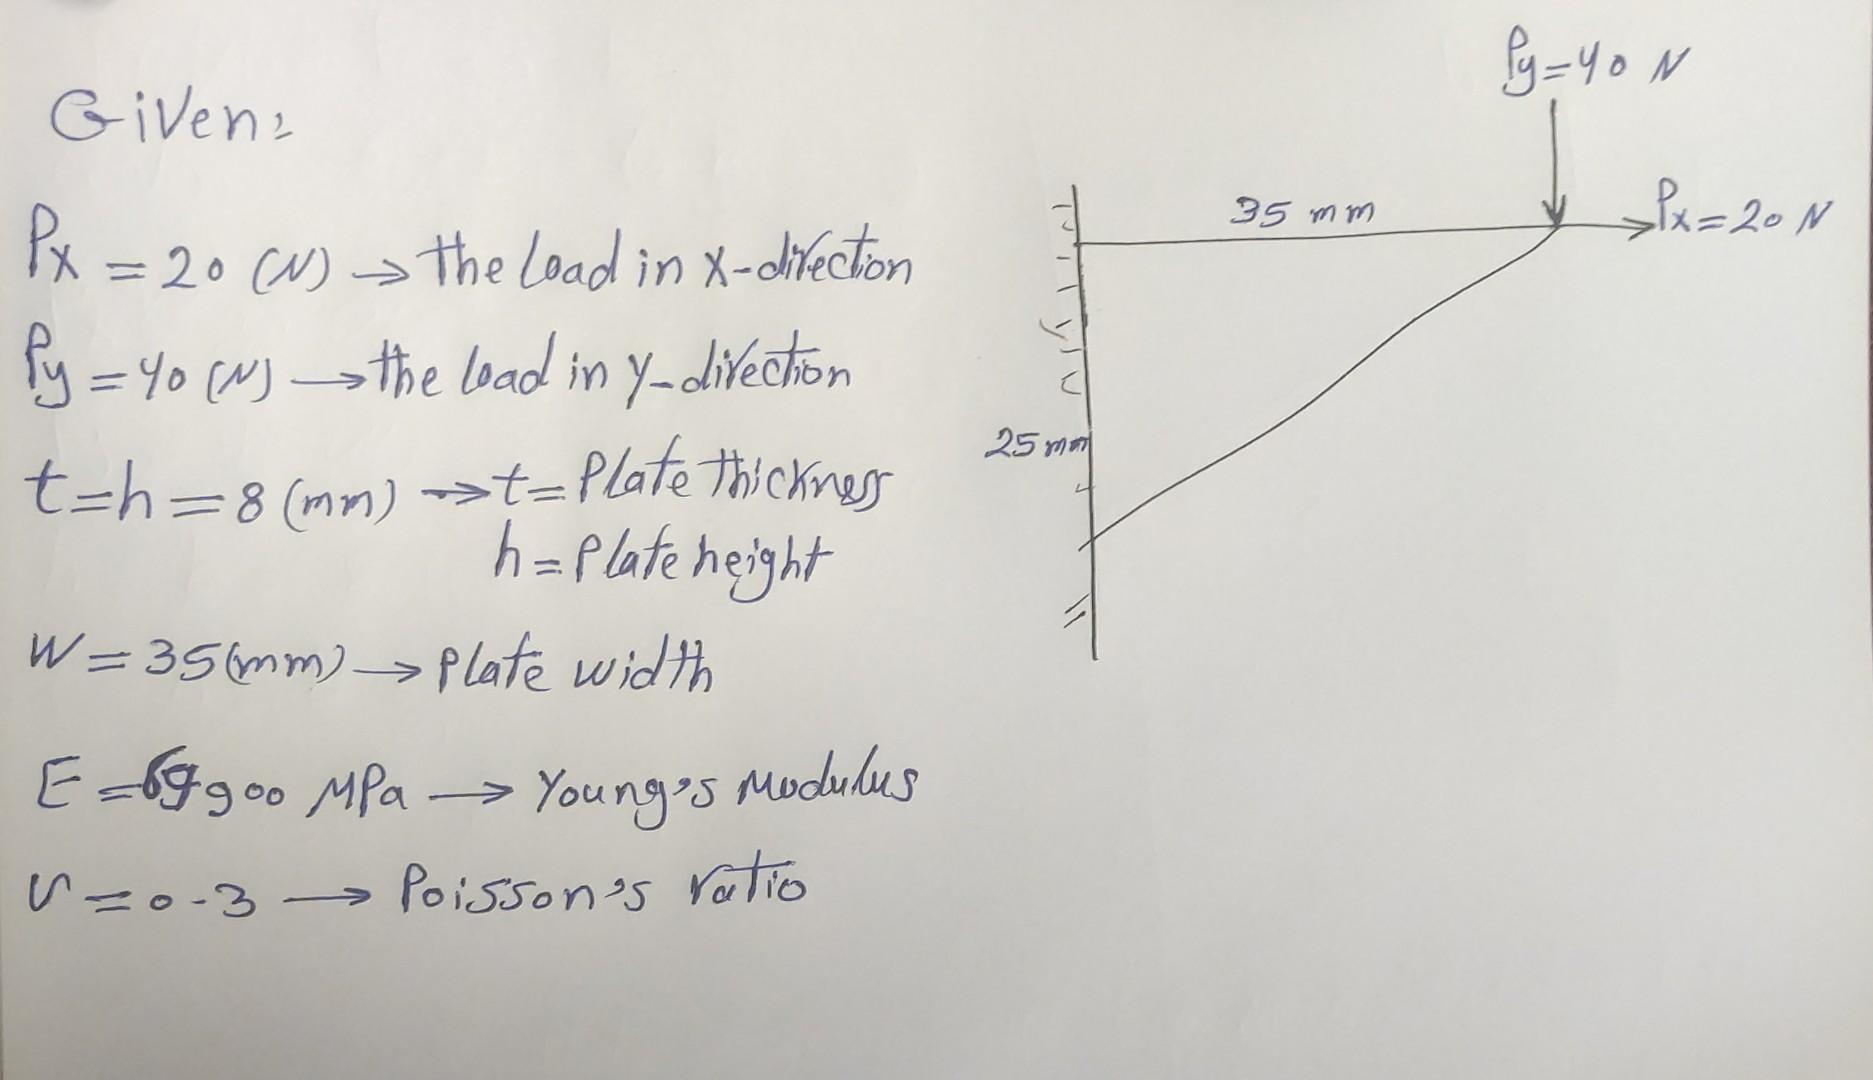 Given:
Px = 20 (N) → the load in x-direction
Py = 40 (N) → the load in y-direction
t=h=8 (mm) → t= Plate thickness
h= Plate height
W = 35(mm) → Plate width
E = 69900 MPa → Young's Modulus
υ = 0.3 → Poisson's ratio
Py=40 N
35 mm
Px=20 N
25 mm